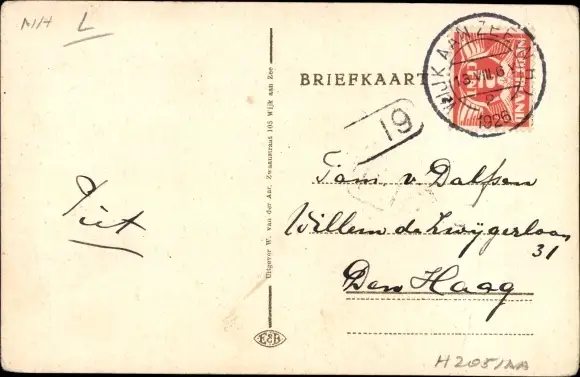 NH L
BRIEFKAART
WIJK AAN ZEE
13.VIII.6
1926
NEDERLAND
19
Fam. v. Dalfsen
Willem de Zwijgerlaan
31
Den Haag
Piet
Uitgever W. van der Aar, Zwaanstraat 105 Wijk aan Zee
H2051AA